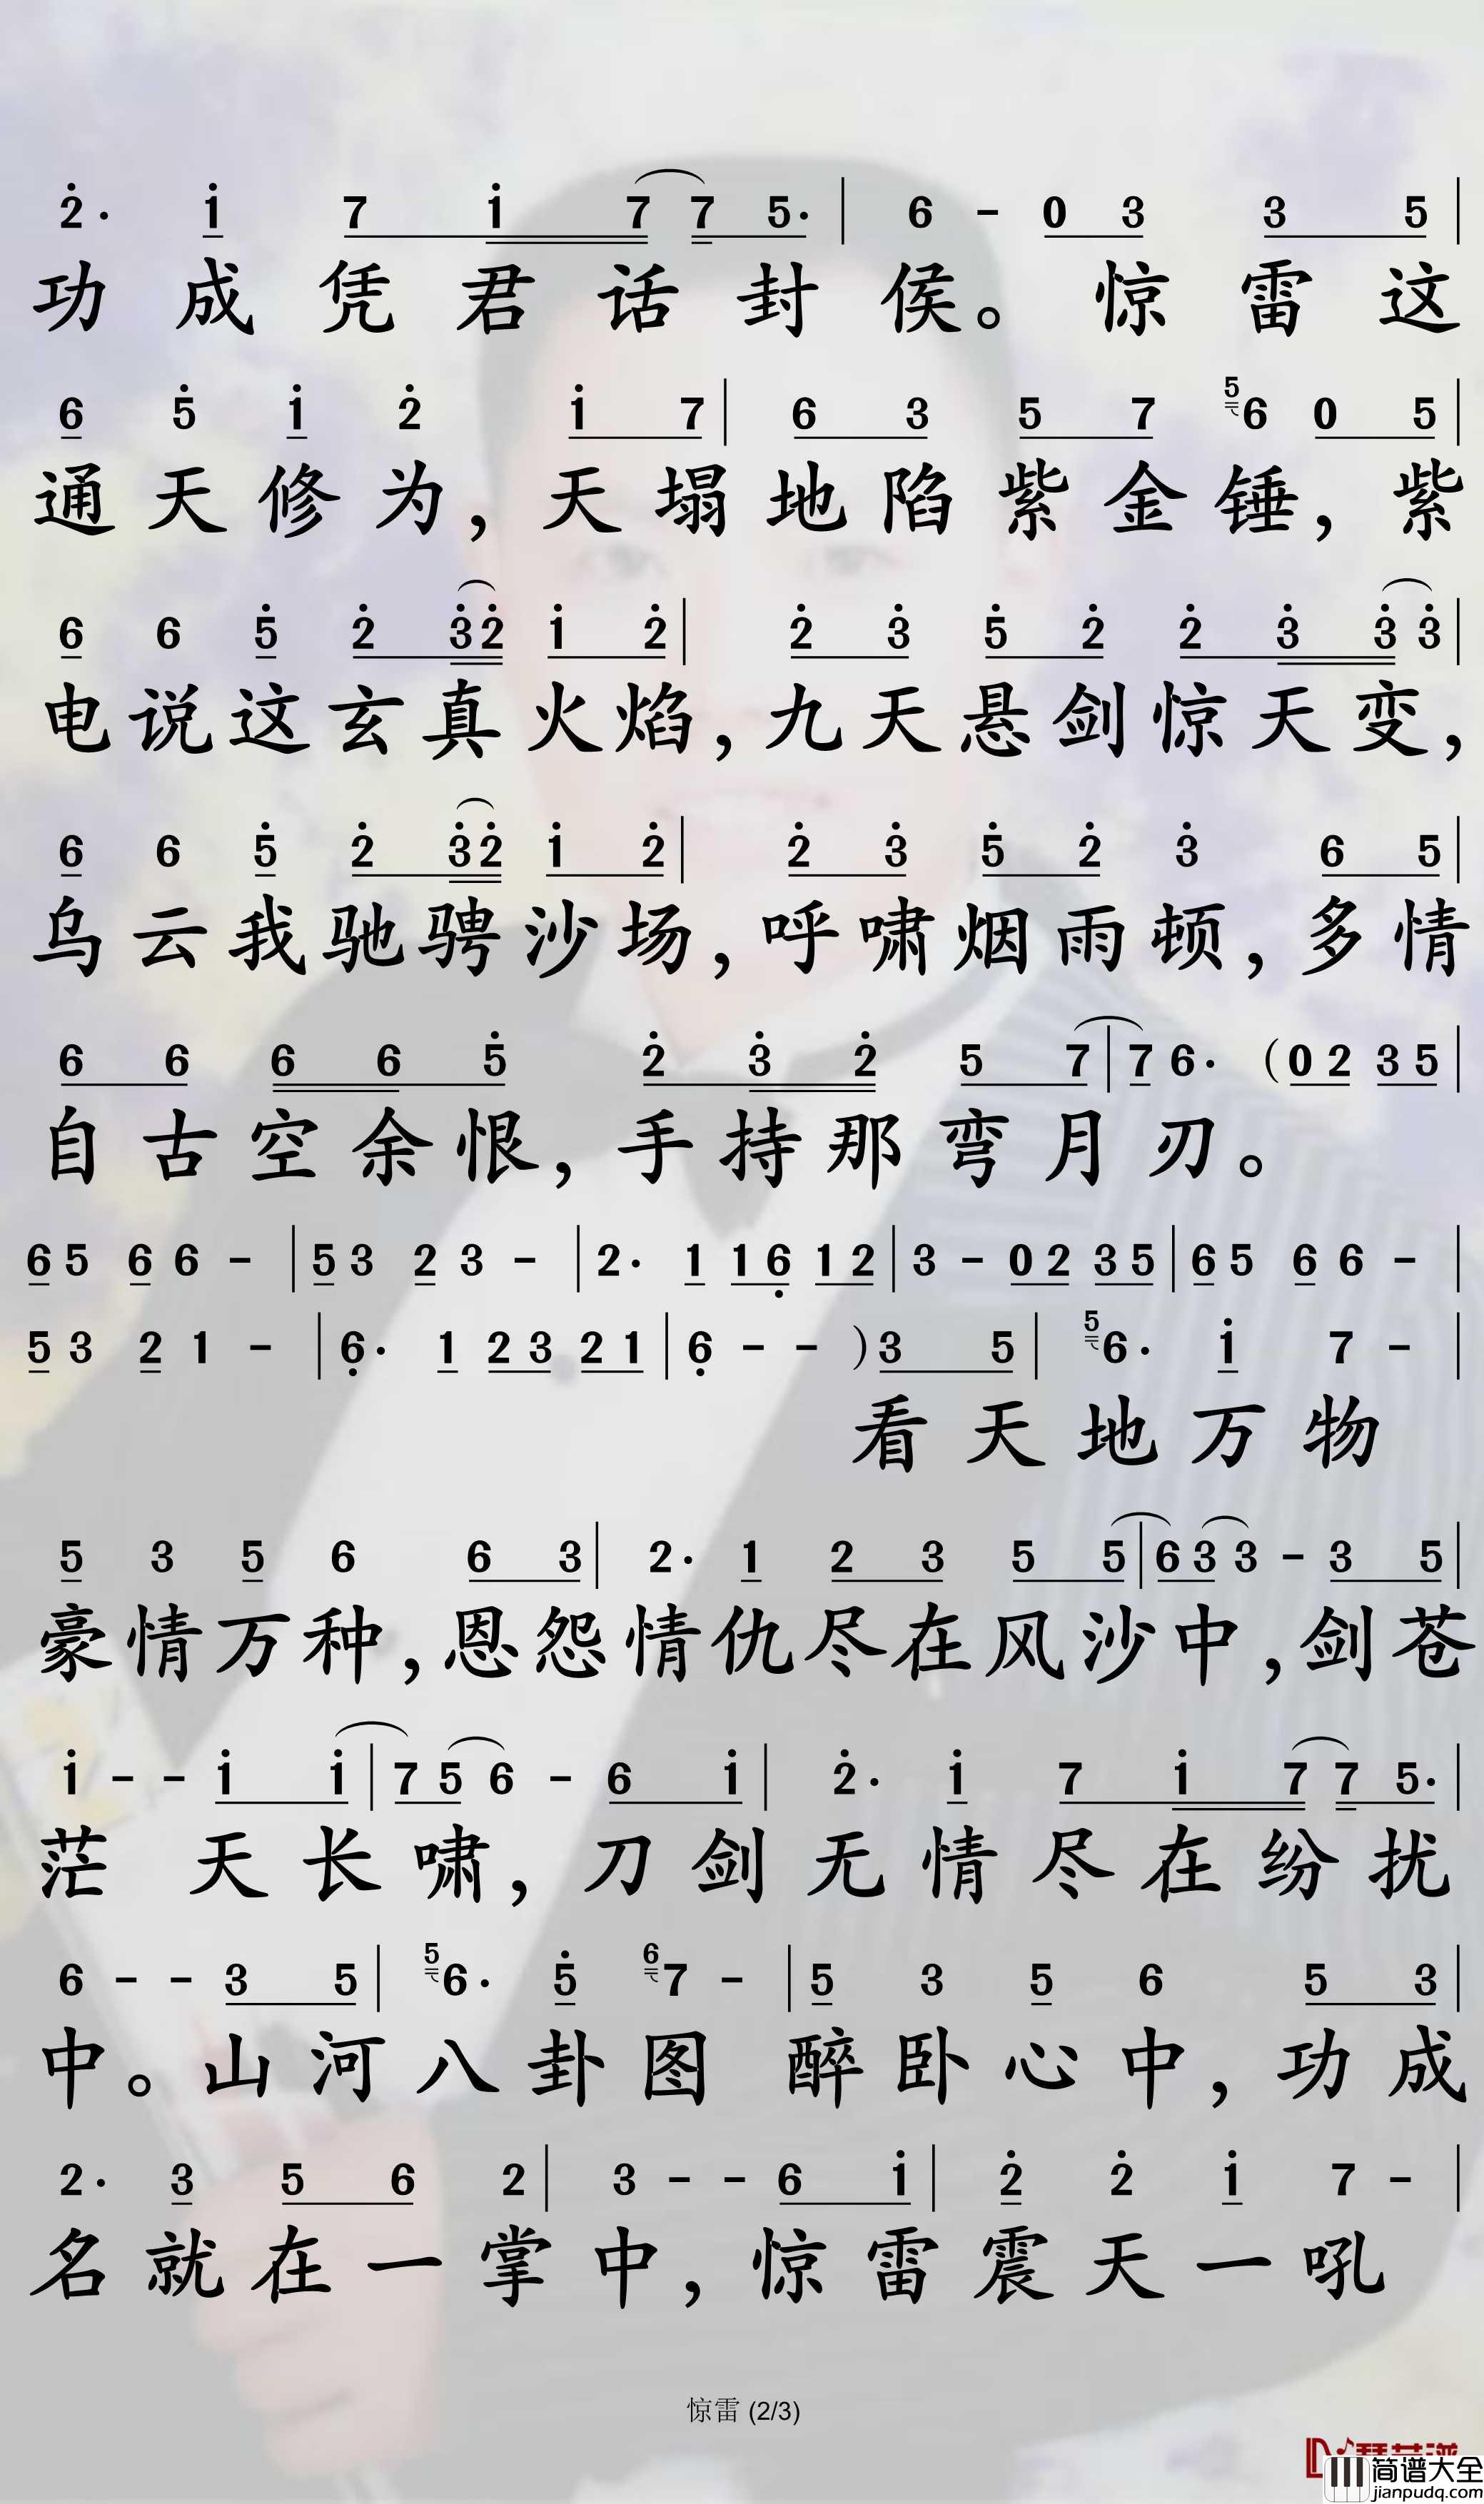 2· 1 7 1 7 7 5· | 6 - 0 3 3 5 |
功成凭君话封侯。惊雷这
6 5 1 2 1 7 | 6 3 5 7 5 6 0 5 |
通天修为,天塌地陷紫金锤,紫
6 6 5 2 3 2 1 2 | 2 3 5 2 2 3 3 3 |
电说这玄真火焰,九天悬剑惊天变,
6 6 5 2 3 2 1 2 | 2 3 5 2 3 6 5 |
乌云我驰骋沙场,呼啸烟雨顿,多情
6 6 6 6 5 2 3 2 5 7 | 7 6· (0 2 3 5 |
自古空余恨,手持那弯月刃。
6 5 6 6 - | 5 3 2 3 - | 2· 1 1 6 1 2 | 3 - 0 2 3 5 | 6 5 6 6 - |
5 3 2 1 - | 6· 1 2 3 2 1 | 6 - - ) 3 5 | 5 6· 1 7 - |
看天地万物
5 3 5 6 6 3 | 2· 1 2 3 5 5 | 6 3 3 - 3 5 |
豪情万种,恩怨情仇尽在风沙中,剑苍
1 - - 1 1 | 7 5 6 - 6 1 | 2· 1 7 1 7 7 5· |
茫天长啸,刀剑无情尽在纷扰
6 - - 3 5 | 5 6· 5 6 7 - | 5 3 5 6 5 3 |
中。山河八卦图 醉卧心中,功成
2· 3 5 6 2 | 3 - - 6 1 | 2 2 1 7 - |
名就在一掌中,惊雷震天一吼
惊雷 (2/3)
简谱大全
jianpudq.com